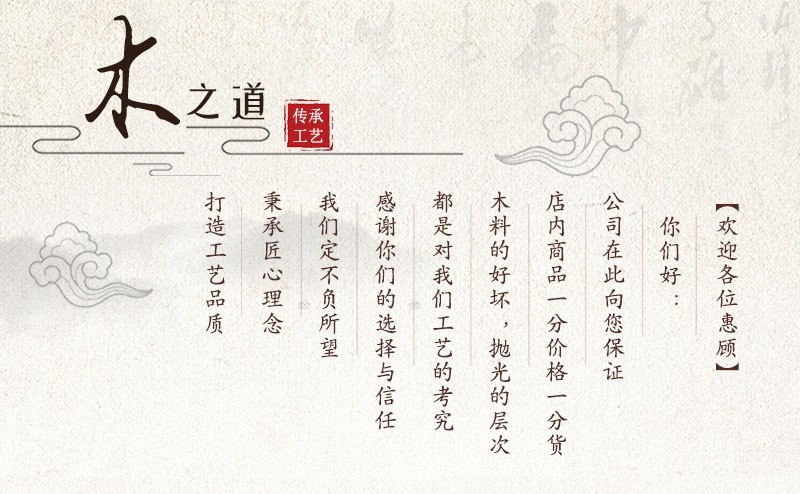 木之道
传承
工艺
【欢迎各位惠顾】
你们好：
公司在此向您保证
店内商品一分价格一分货
木料的好坏，抛光的层次
都是对我们工艺的考究
感谢你们的选择与信任
我们定不负所望
秉承匠心理念
打造工艺品质